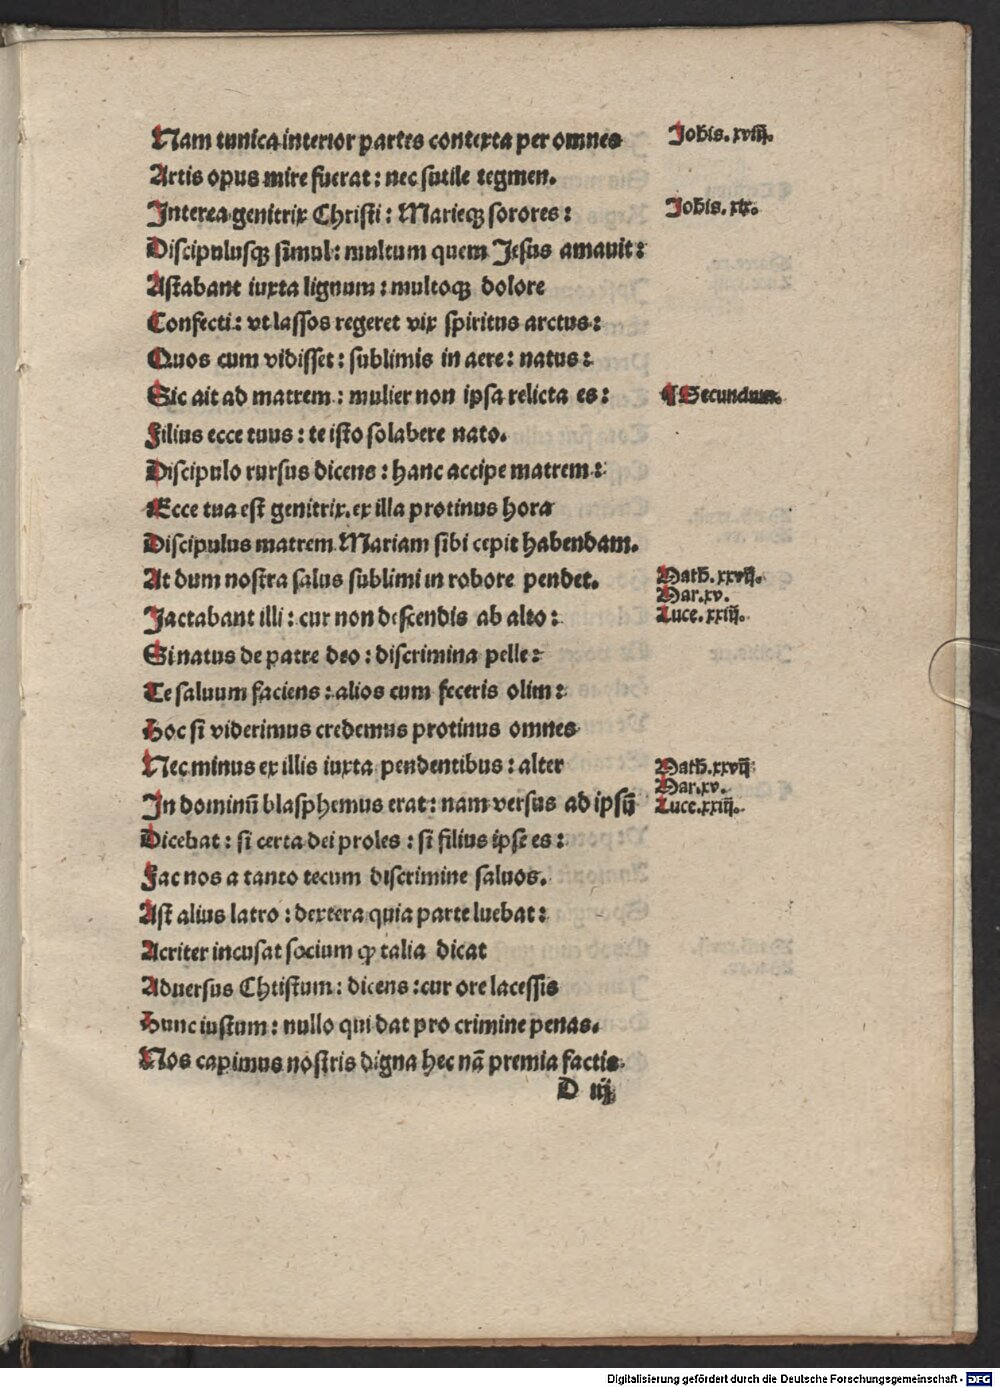 Nam tunica interior partes contexta per omnes
Johis. xviij.
Artis opus mire fuerat : nec sutile tegmen.
Interea genitrix Christi : Marieqꝫ sorores :
Johis. xix.
Discipulusqꝫ simul : multum quem Jesus amauit :
Astabant iuxta lignum : multoqꝫ dolore
Confecti : vt lassos regeret vix spiritus arctus :
Quos cum vidisset : sublimis in aere : natus :
Sic ait ad matrem : mulier non ipsa relicta es :
¶ Secundum.
Filius ecce tuus : te isto solabere nato.
Discipulo rursus dicens : hanc accipe matrem :
Ecce tua est genitrix. ex illa protinus hora
Discipulus matrem Mariam sibi cepit habendam.
At dum nostra salus sublimi in robore pendet.
Math. xxvij.
Mar. xv.
Jactabant illi : cur non descendis ab alto :
Luce. xxiij.
Si natus de patre deo : discrimina pelle :
Te saluum faciens : alios cum feceris olim :
Hoc si viderimus credemus protinus omnes
Nec minus ex illis iuxta pendentibus : alter
Math. xxvij
Mar. xv.
In dominū blasphemus erat : nam versus ad ipsū
Luce. xxiij.
Dicebat : si certa dei proles : si filius ipse es :
Fac nos a tanto tecum discrimine saluos.
Ast alius latro : dextera quia parte luebat :
Acriter incusat socium ꝙ talia dicat
Aduersus Chtistum : dicens : cur ore lacessis
Hunc iustum : nullo qui dat pro crimine penas.
Nos capimus nostris digna hec nā premia factis.
D iij
Digitalisierung gefördert durch die Deutsche Forschungsgemeinschaft - DFG